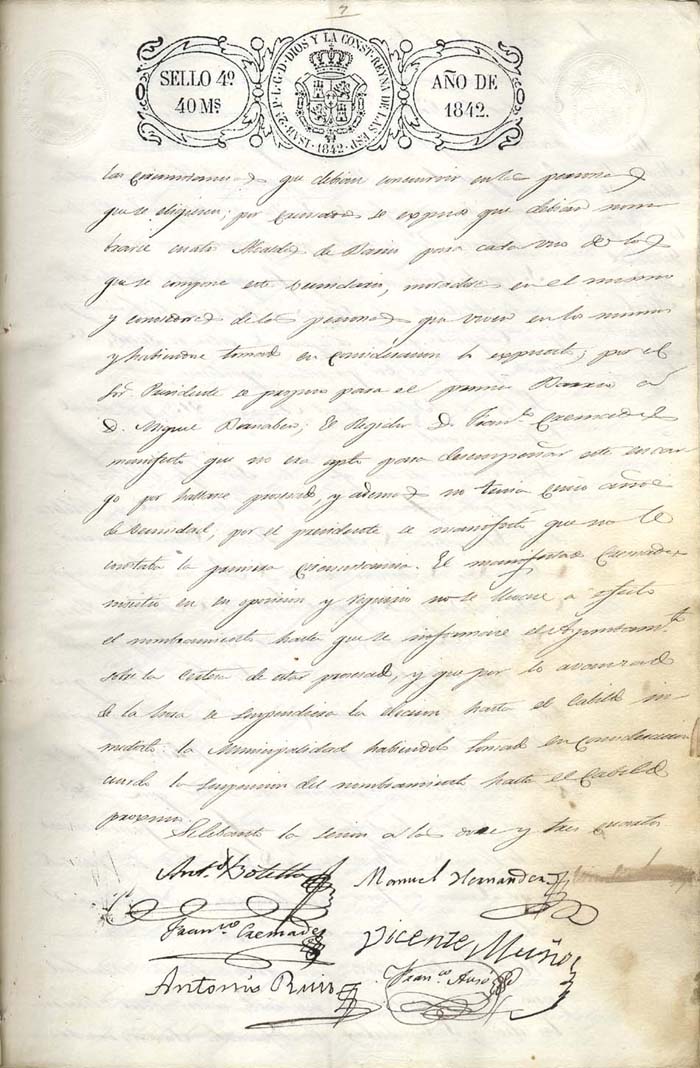 7
SELLO 4º
40 Ms.
ISAB. 2ª P. L. G. D. DIOS Y LA CONST. REYNA DE LAS ESP.
1842
AÑO DE
1842.
las circunstancias que debian concurrir en las personas
que se eligiesen; por se expuso que debian nom
brarse cuatro Alcaldes de Barrio para cada uno de los
que se compone este vecindario, moradores en el mismo
y conocedores de las personas que viven en los mismos
y habiendose tomado en consideracion lo expuesto; por el
Sr. Presidente se propuso para el primer Barrio á
D. Miguel Bernabeu; El Regidor D. Franco. Cremades
manifestó que no era apto para desempeñar este encar
go por hallarse procesado, y ademas no tenia cinco años
de vecindad, por el presidente se manifestó que no le
constaba la primera circunstancia. El manifestado Cremades
insistió en su oposicion y requirio no se llevase a efecto
el nombramiento hasta que se informase el Ayuntamto.
sobre la certeza de estar procesado, y que por lo avanzado
de la hora se suspendiese la eleccion hasta el Cabildo in
mediato: la Municipalidad habiendolo tomado en consideracion
acordó la suspension del nombramiento hasta el Cabildo
proximo.
la sesion a las doce y tres cuartos
Anto. Botella
Manuel Hernandez
Franco. Cremades
Vicente Muñoz
Antonio Ruiz
Franco. Auso